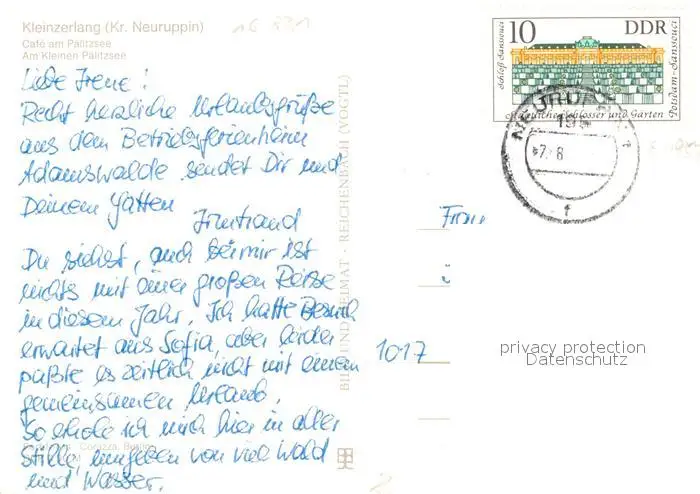 Kleinzerlang (Kr. Neuruppin)
Café am Pälitzsee
Am Kleinen Pälitzsee
Liebe Irene!
Recht herzliche Urlaubsgrüße
aus dem Betriebsferienheim
Adamswalde sendet Dir und
Deinem Gatten
Irmtraud
Du siehst, auch bei mir ist
nichts mit einer großen Reise
in diesem Jahr. Ich hatte Besuch
erwartet aus Sofia, aber leider
paßte es zeitlich nicht mit einem
gemeinsamen Urlaub.
So erhole ich mich hier in aller
Stille, umgeben von viel Wald
und Wasser.
BILD UND HEIMAT · REICHENBACH (VOGTL)
10 DDR
Schloß Sanssouci
Potsdam-Sanssouci
Schlösser und Gärten
NEURUP
7. 8
1
Frau
1017
privacy protection
Datenschutz